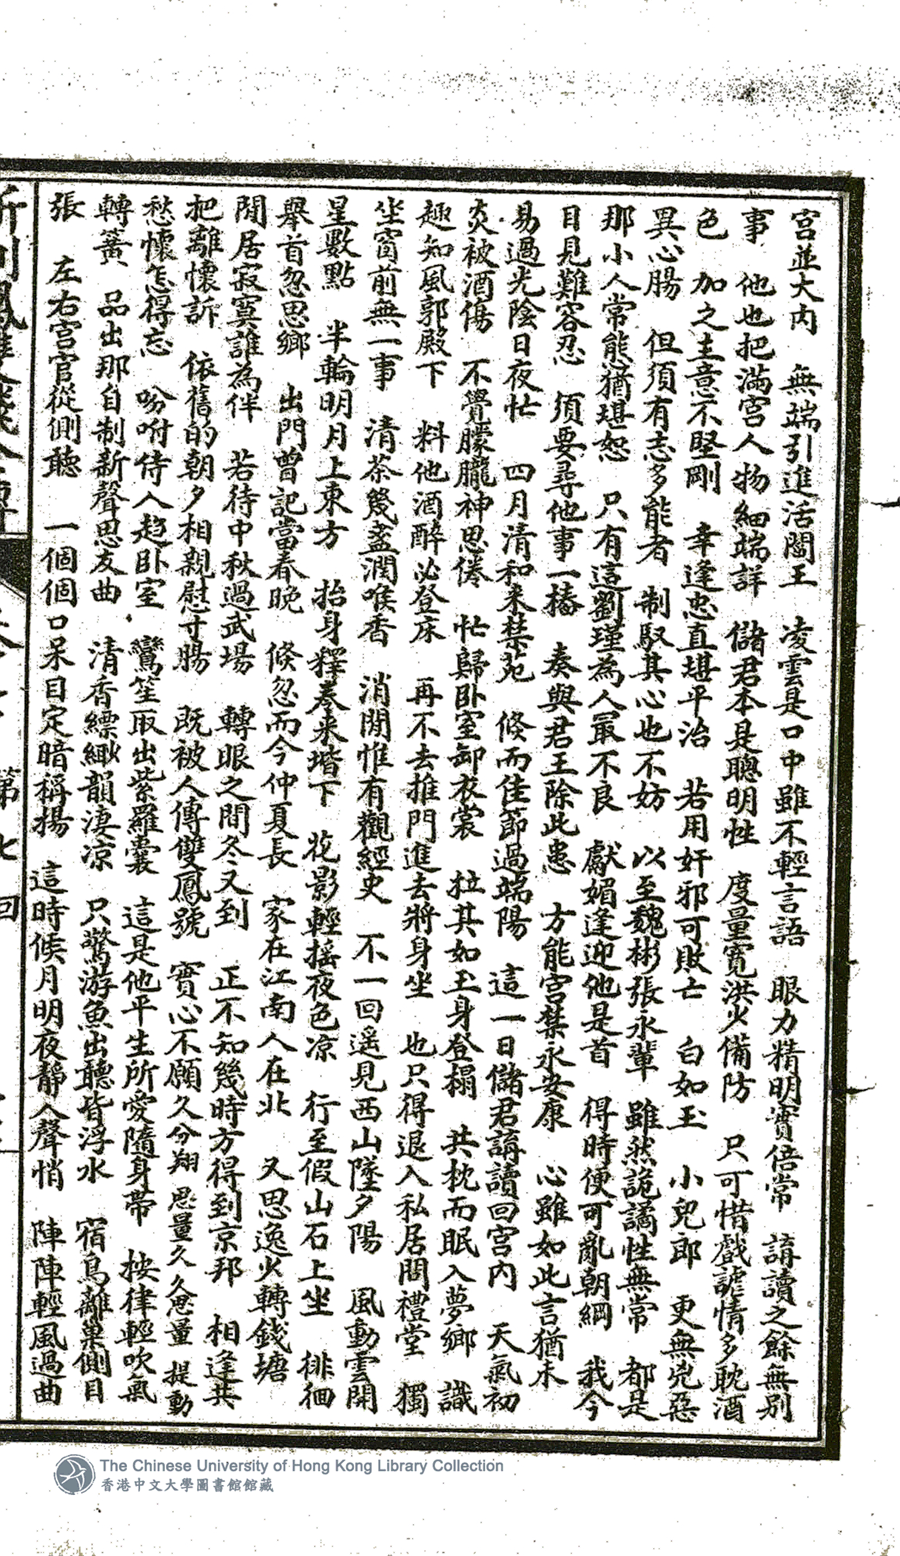 宮並大內　無端引進活閻王　凌雲是口中雖不輕言語　眼力精明實倍常　講讀之餘無別
事　他也把滿宮人物細端詳　儲君本是聰明性　度量寬洪少備防　只可惜戲謔情多耽酒
色　加之主意不堅剛　幸逢忠直堪平治　若用奸邪可敗亡　白如玉　小兒郎　更無兇惡
異心腸　但須有志多能者　制馭其心也不妨　以至魏彬張永輩　雖然詭譎性無常　都是
那小人常態猶堪恕　只有這劉瑾為人最不良　獻媚逢迎他是首　得時便可亂朝綱　我今
目見難容忍　須要尋他事一樁　奏與君王除此患　方能宮禁永安康　心雖如此言猶未
易過光陰日夜忙　四月清和来禁苑　倏而佳節過端陽　這一日儲君講讀回宮內　天氣初
炎被酒傷　不覺朦朧神思倦　忙歸卧室卸衣裳　拉其如玉身登榻　共枕而眠入夢鄉　識
趣知風郭殿下　料他酒醉必登床　再不去推門進去將身坐　也只得退入私居問禮堂　獨
坐窗前無一事　清茶幾盞潤喉香　消閒惟有觀經史　不一回遥見西山墜夕陽　風動雲開
星數點　半輪明月上東方　抬身釋卷来堦下　花影輕搖夜色凉　行至假山石上坐　徘徊
舉首忽思鄉　出門曾記當春晚　倏忽而今仲夏長　家在江南人在北　又思逸少轉錢塘
閒居寂寞誰為伴　若待中秋過武場　轉眼之間冬又到　正不知幾時方得到京邦　相逢共
把離懷訴　依舊的朝夕相親慰寸腸　既被人傳雙鳳號　實心不願久分翔　思量久久思量　提動
愁懷怎得忘　吩咐侍人趋卧室　鸞笙取出紫羅囊　這是他平生所愛隨身带　按律輕吹氣
轉簧　品出那自制新聲思友曲　清香縹緲韻淒凉　只驚游魚出聽皆浮水　宿鳥離巢側目
張　左右宮官從側聽　一個個口呆目定暗稱揚　這時候月明夜靜人聲悄　陣陣輕風過曲
第七回
The Chinese University of Hong Kong Library Collection
香港中文大學圖書館館藏